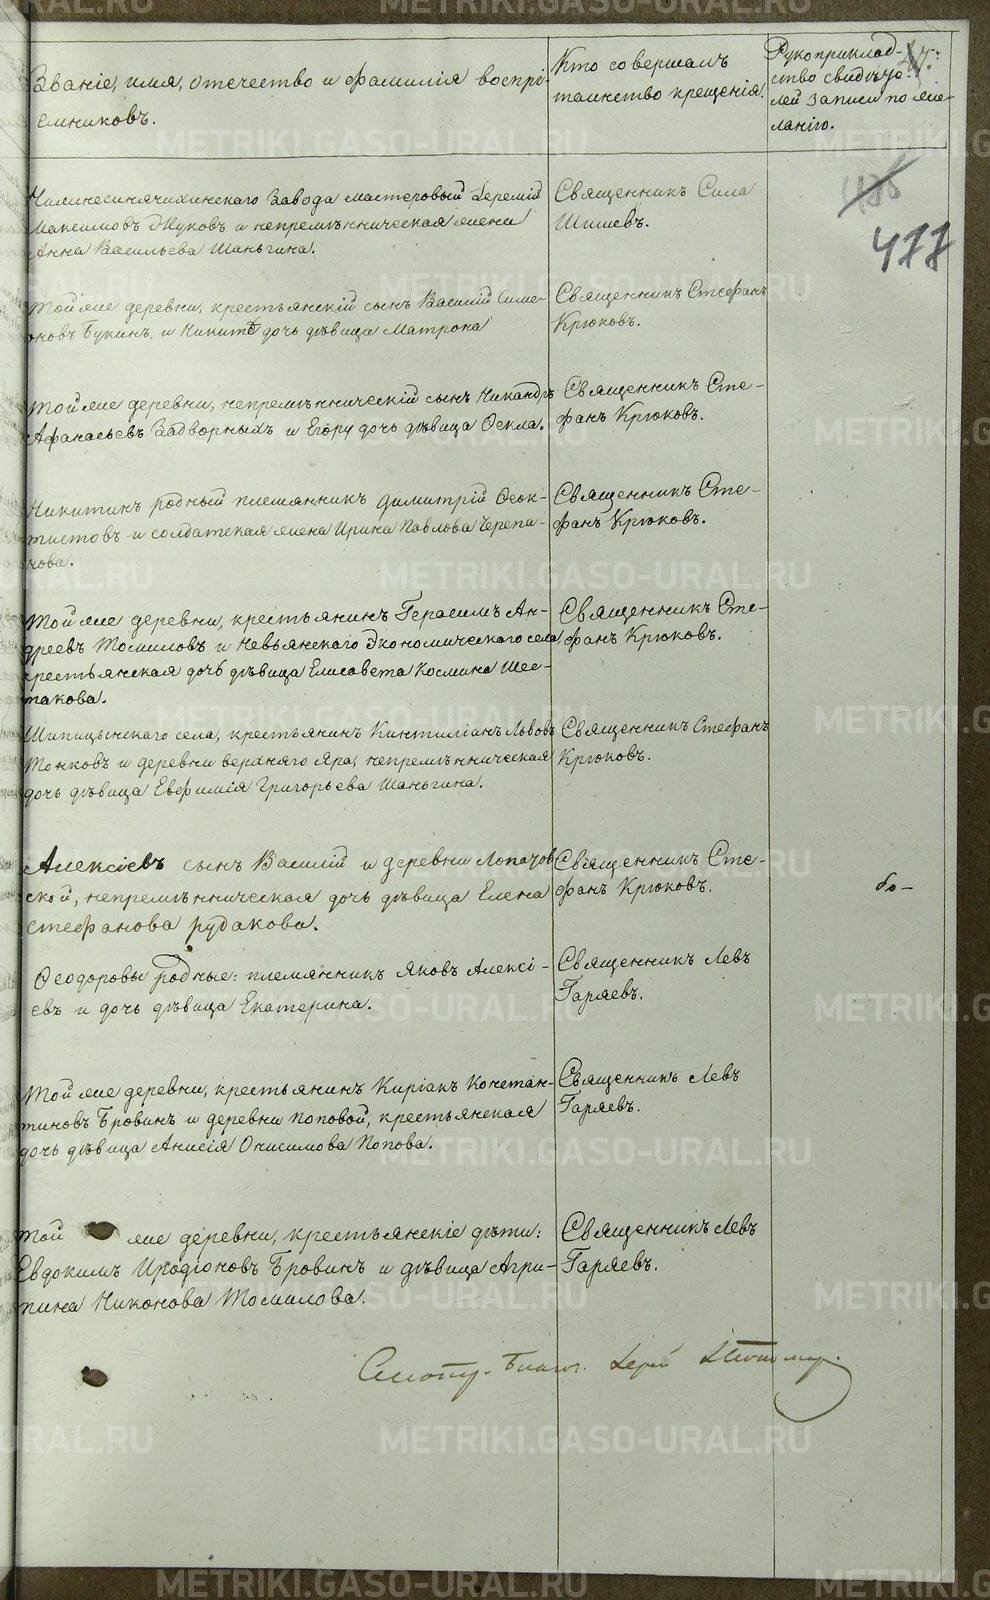 Званіе, имя, отечество и фамилія воспрі-
емниковъ.
Кто совершалъ
таинство крещенія.
Рукоприклад-
ство свидѣте-
лей записи по же-
ланію.
477
Нижнесинячихинскаго завода мастеровый Іеремій
Максимовъ Жуковъ и непремѣнническая жена
Анна Васильева Шаньгина.
Священникъ Сила
Шишевъ.
Той же деревни, крестьянскій сынъ Василій Симе-
оновъ Букинъ, и Никиты дочь дѣвица Матрона
Священникъ Стефанъ
Крюковъ.
Той же деревни, непремѣнническій сынъ Никандръ
Афанасьевъ Задворныхъ и Егору дочь дѣвица Ѳекла.
Священникъ Сте-
фанъ Крюковъ.
Никитинъ родный племянникъ Димитрій Ѳеок-
тистовъ и солдатская жена Ирина Павлова Черепа-
нова.
Священникъ Сте-
фанъ Крюковъ.
Той же деревни, крестьянинъ Герасимъ Ан-
дреевъ Томиловъ и Невьянскаго Экономическаго села
крестьянская дочь дѣвица Елисавета Космина Шес-
такова.
Священникъ Сте-
фанъ Крюковъ.
Шипицынскаго села, крестьянинъ Кинтиліанъ Львовъ
Тонковъ и деревни верхняго Яра, непремѣнническая
дочь дѣвица Евфимія Григорьева Шаньгина.
Священникъ Стефанъ
Крюковъ.
Алексіевъ сынъ Василій и деревни Лопатов-
ской, непремѣнническая дочь дѣвица Елена
Стефанова Рудакова.
Священникъ Сте-
фанъ Крюковъ.
бо-
Ѳеодоровы родные: племянникъ Яковъ Алексі-
евъ и дочь дѣвица Екатерина.
Священникъ Левъ
Гаряевъ.
Той же деревни, крестьянинъ Киріакъ Констан-
тиновъ Бровинъ и деревни Поповой, крестьянская
дочь дѣвица Анисія Онисимова Попова.
Священникъ Левъ
Гаряевъ.
Той же деревни, крестьянскіе дѣти:
Евдокимъ Иродіоновъ Бровинъ и дѣвица Агри-
пина Никонова Томилова.
Священникъ Левъ
Гаряевъ.
METRIKI.GASO-URAL.RU